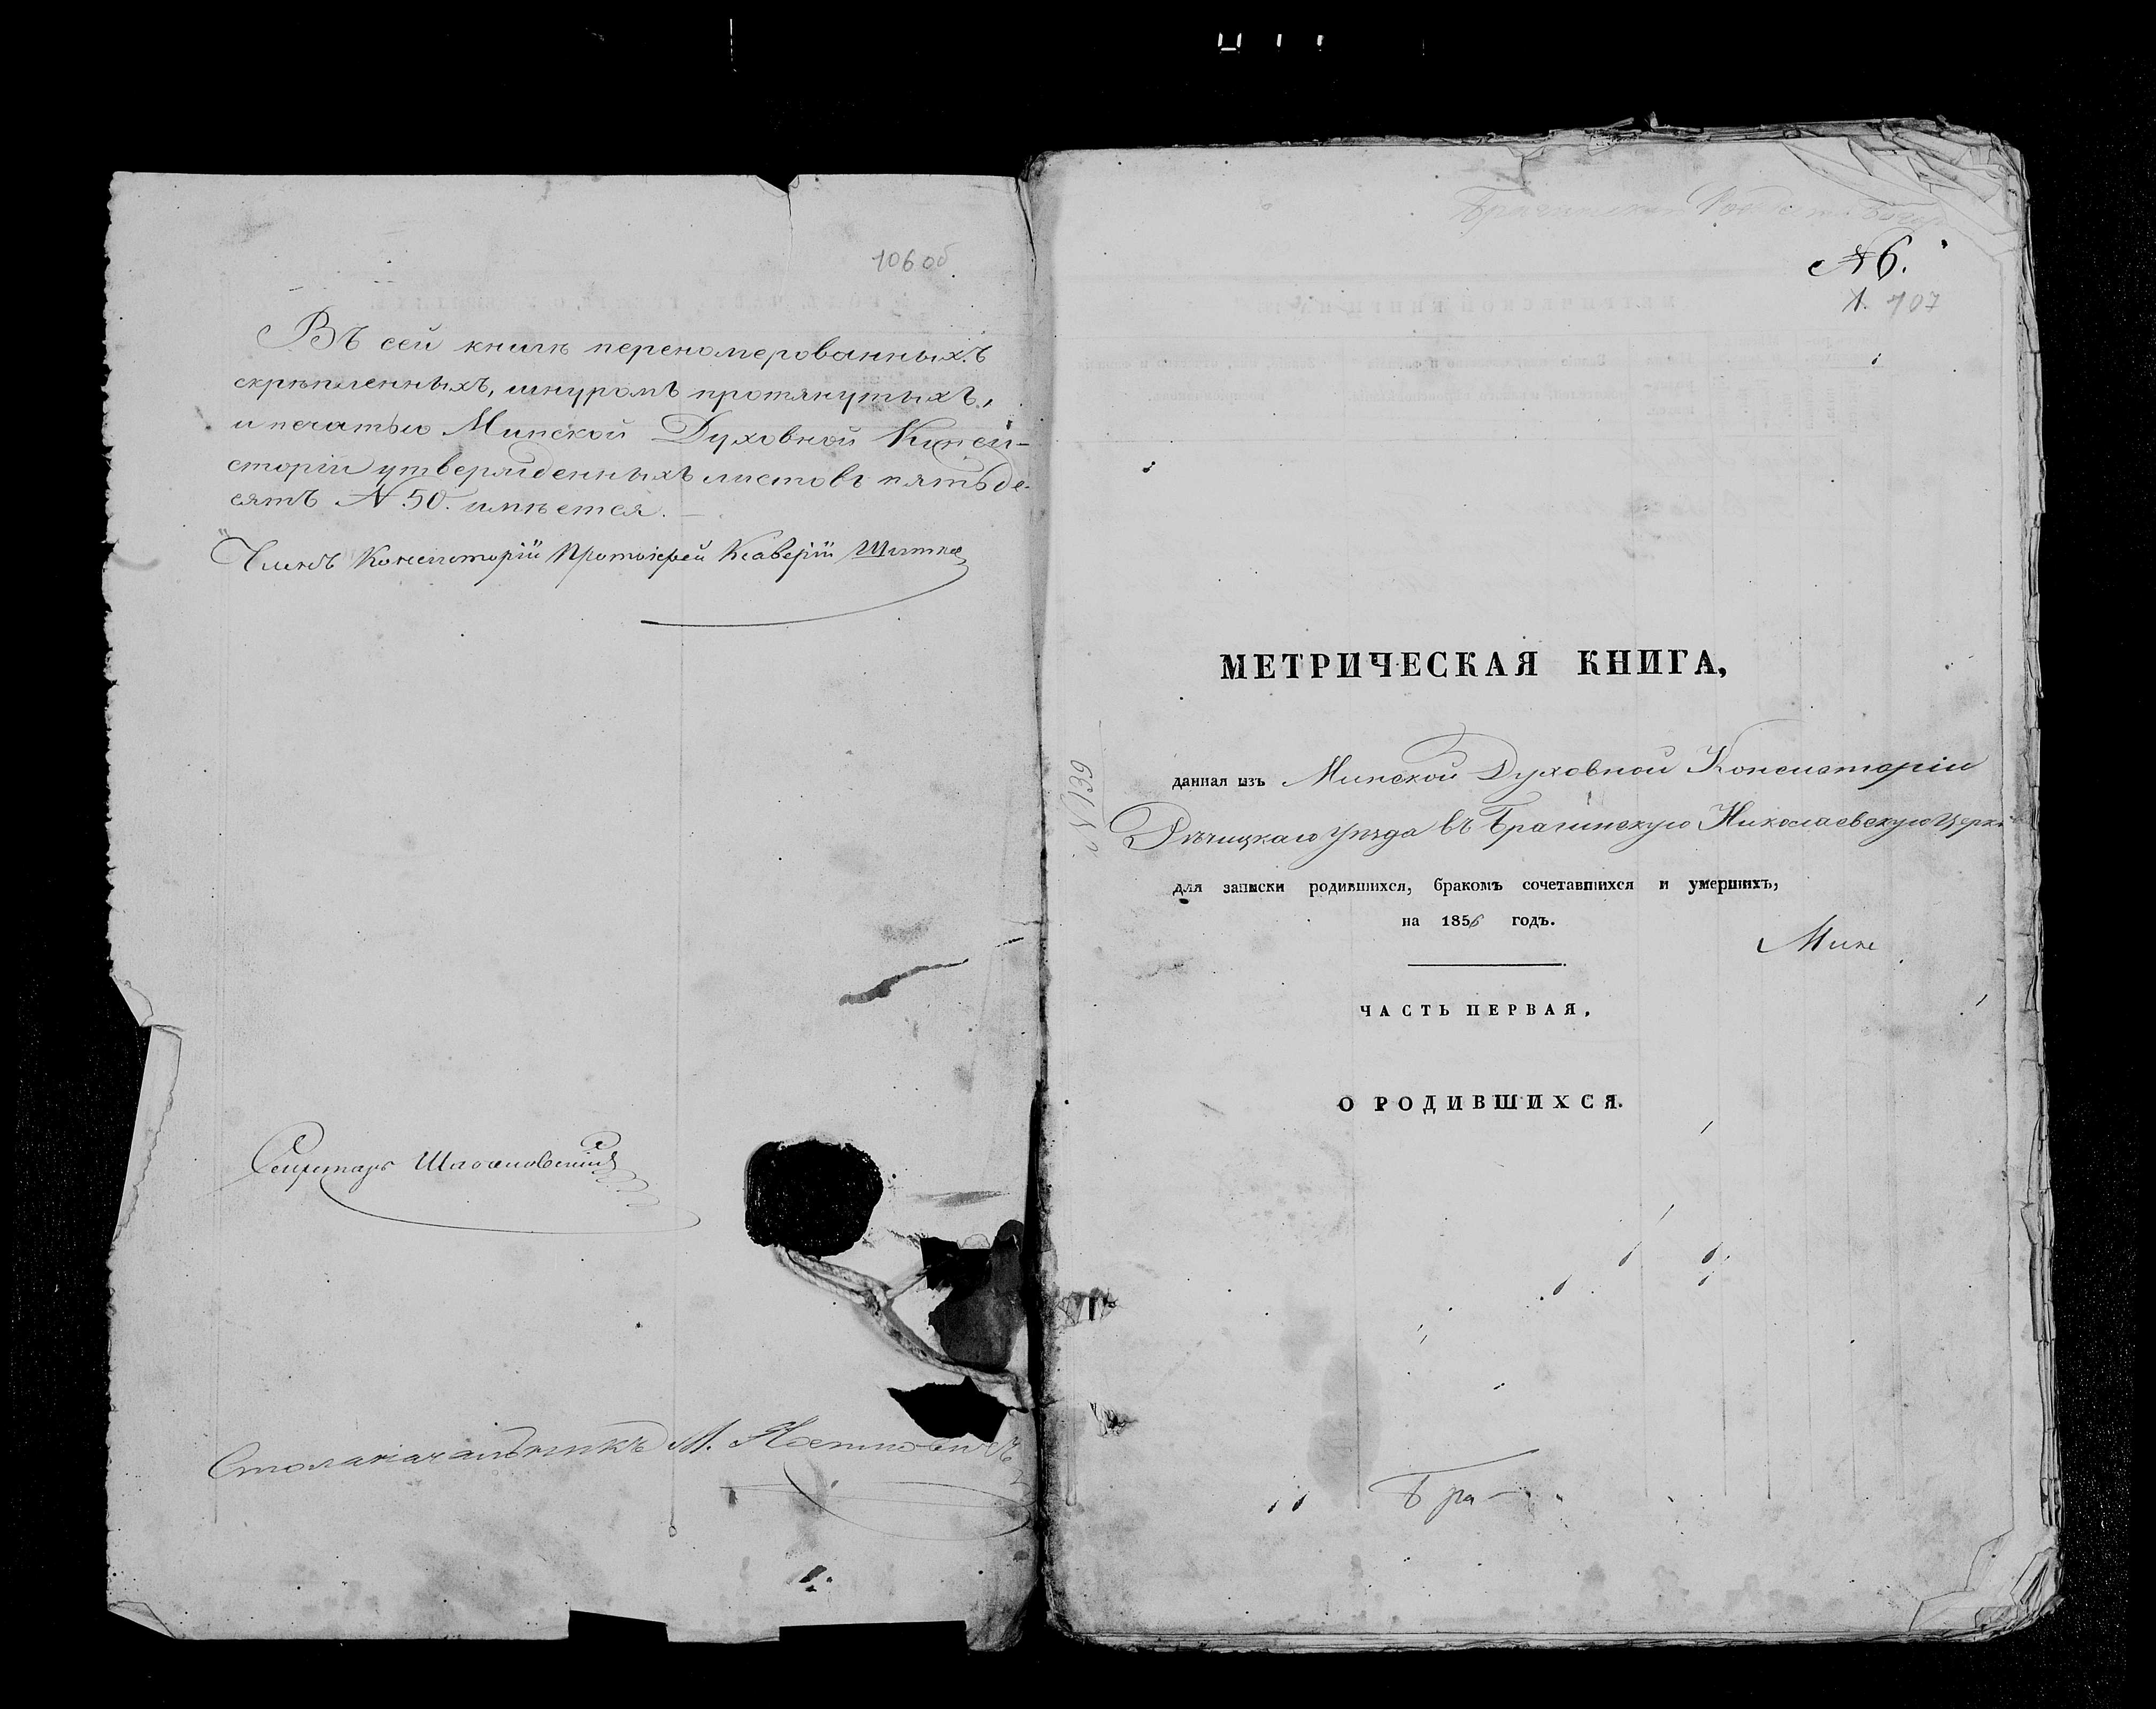 106 об
Въ сей книгѣ переномерованныхъ
скрѣпленныхъ, шнуромъ протянутыхъ,
и печатью Минской Духовной Консі-
сторіи утвержденныхъ листовъ пятьде-
сятъ N. 50. имѣется.
Членъ Консисторіи Протоіерей Ксаверій
Секретарь
Столоначальникъ М.
N6.
1. 107
МЕТРИЧЕСКАЯ КНИГА,
данная изъ Минской Духовной Консисторіи
Рѣчицкаго уѣзда въ Брагинскую Николаевскую Церк
для записки родившихся, бракомъ сочетавшихся и умершихъ,
на 1856 годъ.
Мин
ЧАСТЬ ПЕРВАЯ,
О РОДИВШИХСЯ.
Бра-
N 139